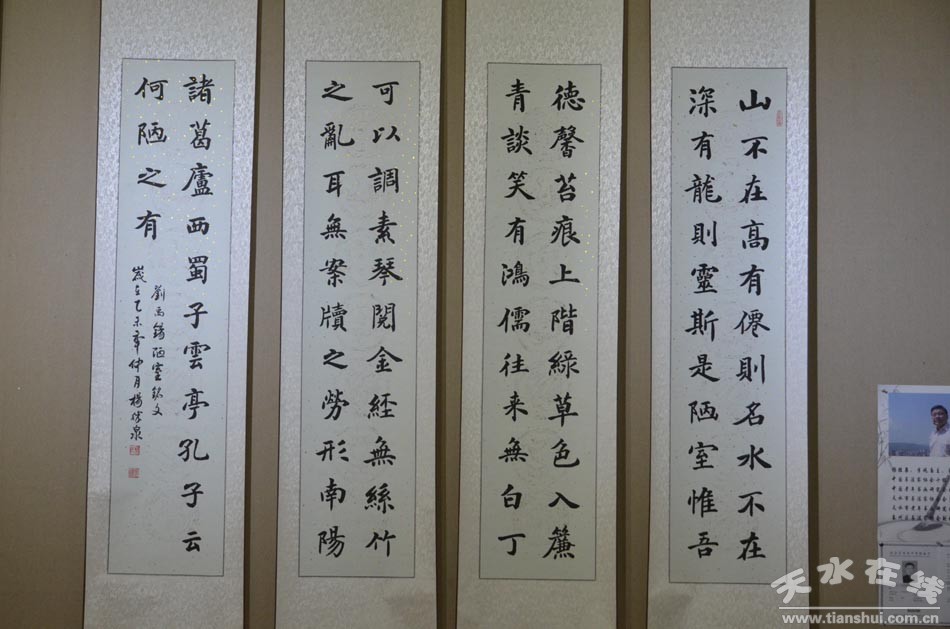 山不在高有僊則名水不在
深有龍則靈斯是陋室惟吾
德馨苔痕上階綠草色入簾
青談笑有鴻儒往来無白丁
可以調素琴閱金経無絲竹
之亂耳無案牘之勞形南陽
諸葛廬西蜀子雲亭孔子云
何陋之有
劉禹錫陋室銘文
歲在乙未年仲月楊
天水在线
www.tianshui.com.cn